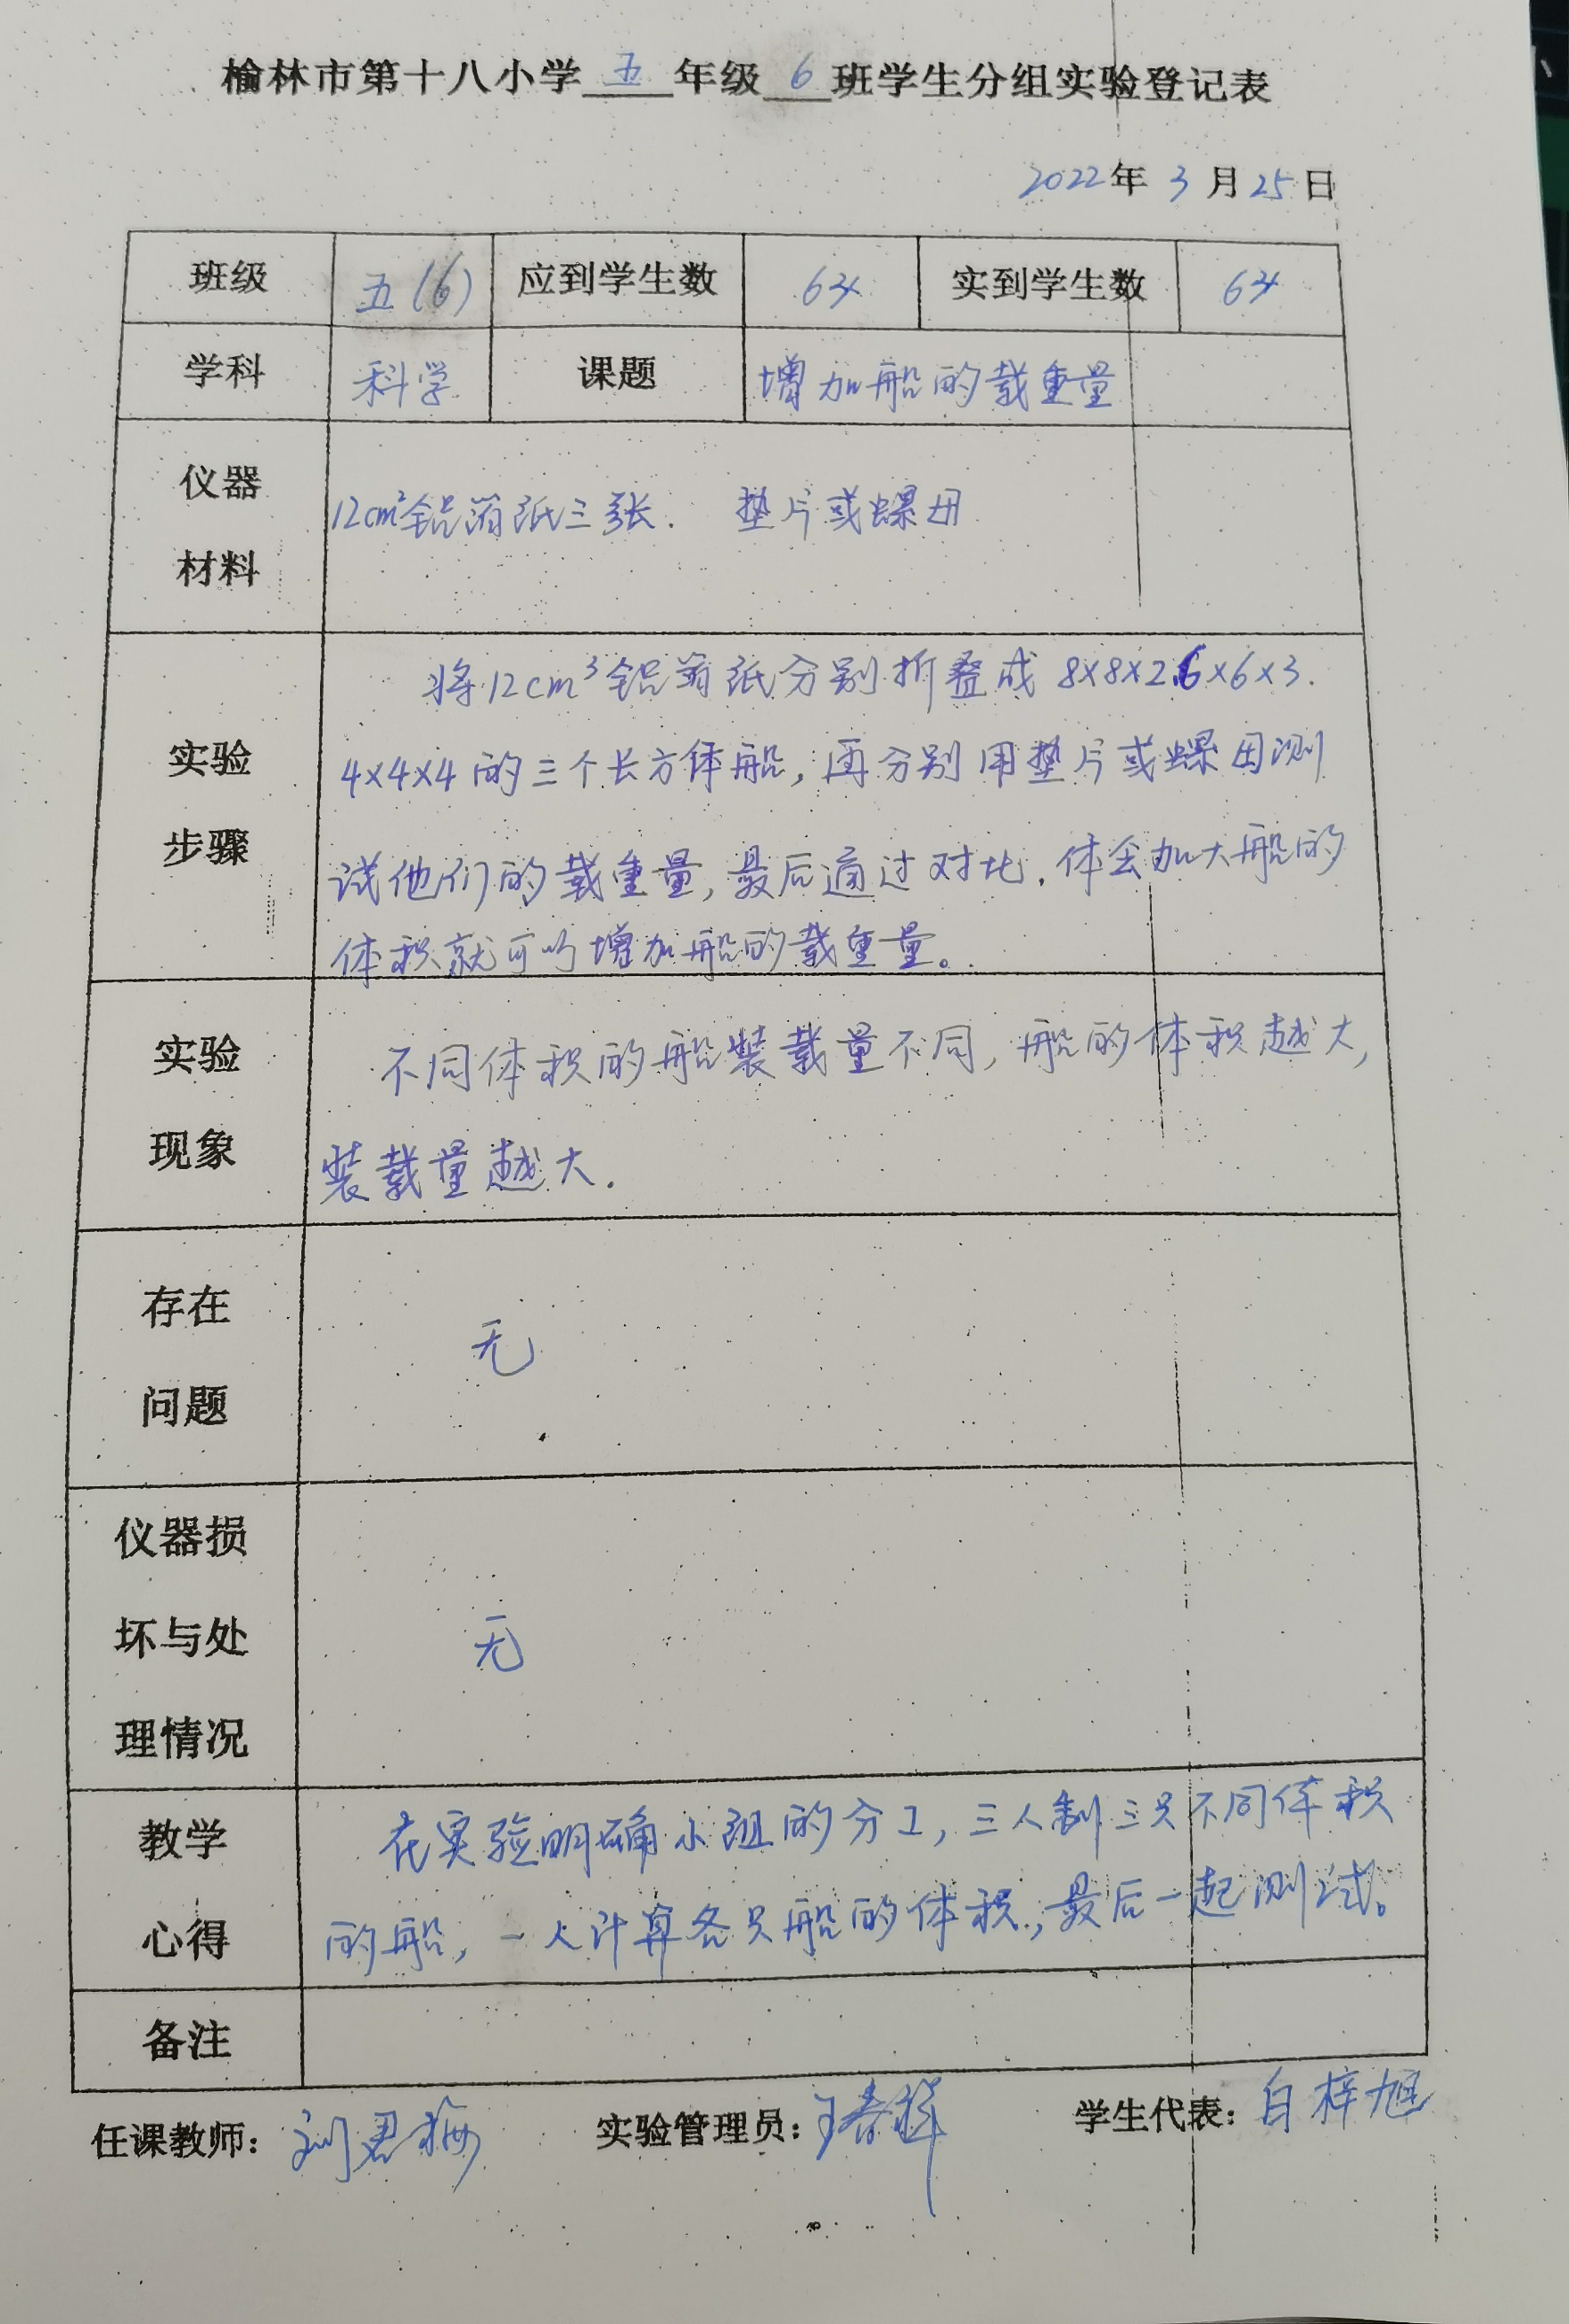 榆林市第十八小学 五 年级 6 班学生分组实验登记表
2022年 3 月 25 日
班级 五(6) 应到学生数 64 实到学生数 64
学科 科学 课题 增加船的载重量
仪器
材料
12cm²铝箔纸三张. 垫片或螺母
实验
步骤
将12cm³铝箔纸分别折叠成 8×8×2.6×6×3.
4×4×4 的三个长方体船,再分别用垫片或螺母测
试他们的载重量,最后通过对比.体会加大船的
体积就可以增加船的载重量。
实验
现象
不同体积的船装载量不同,船的体积越大,
装载量越大.
存在
问题
无
仪器损
坏与处
理情况
无
教学
心得
在实验明确小组的分工,三人制三只不同体积
的船,一人计算各只船的体积,最后一起测试。
备注
任课教师: 刘君梅 实验管理员: 王春 学生代表: 白梓旭